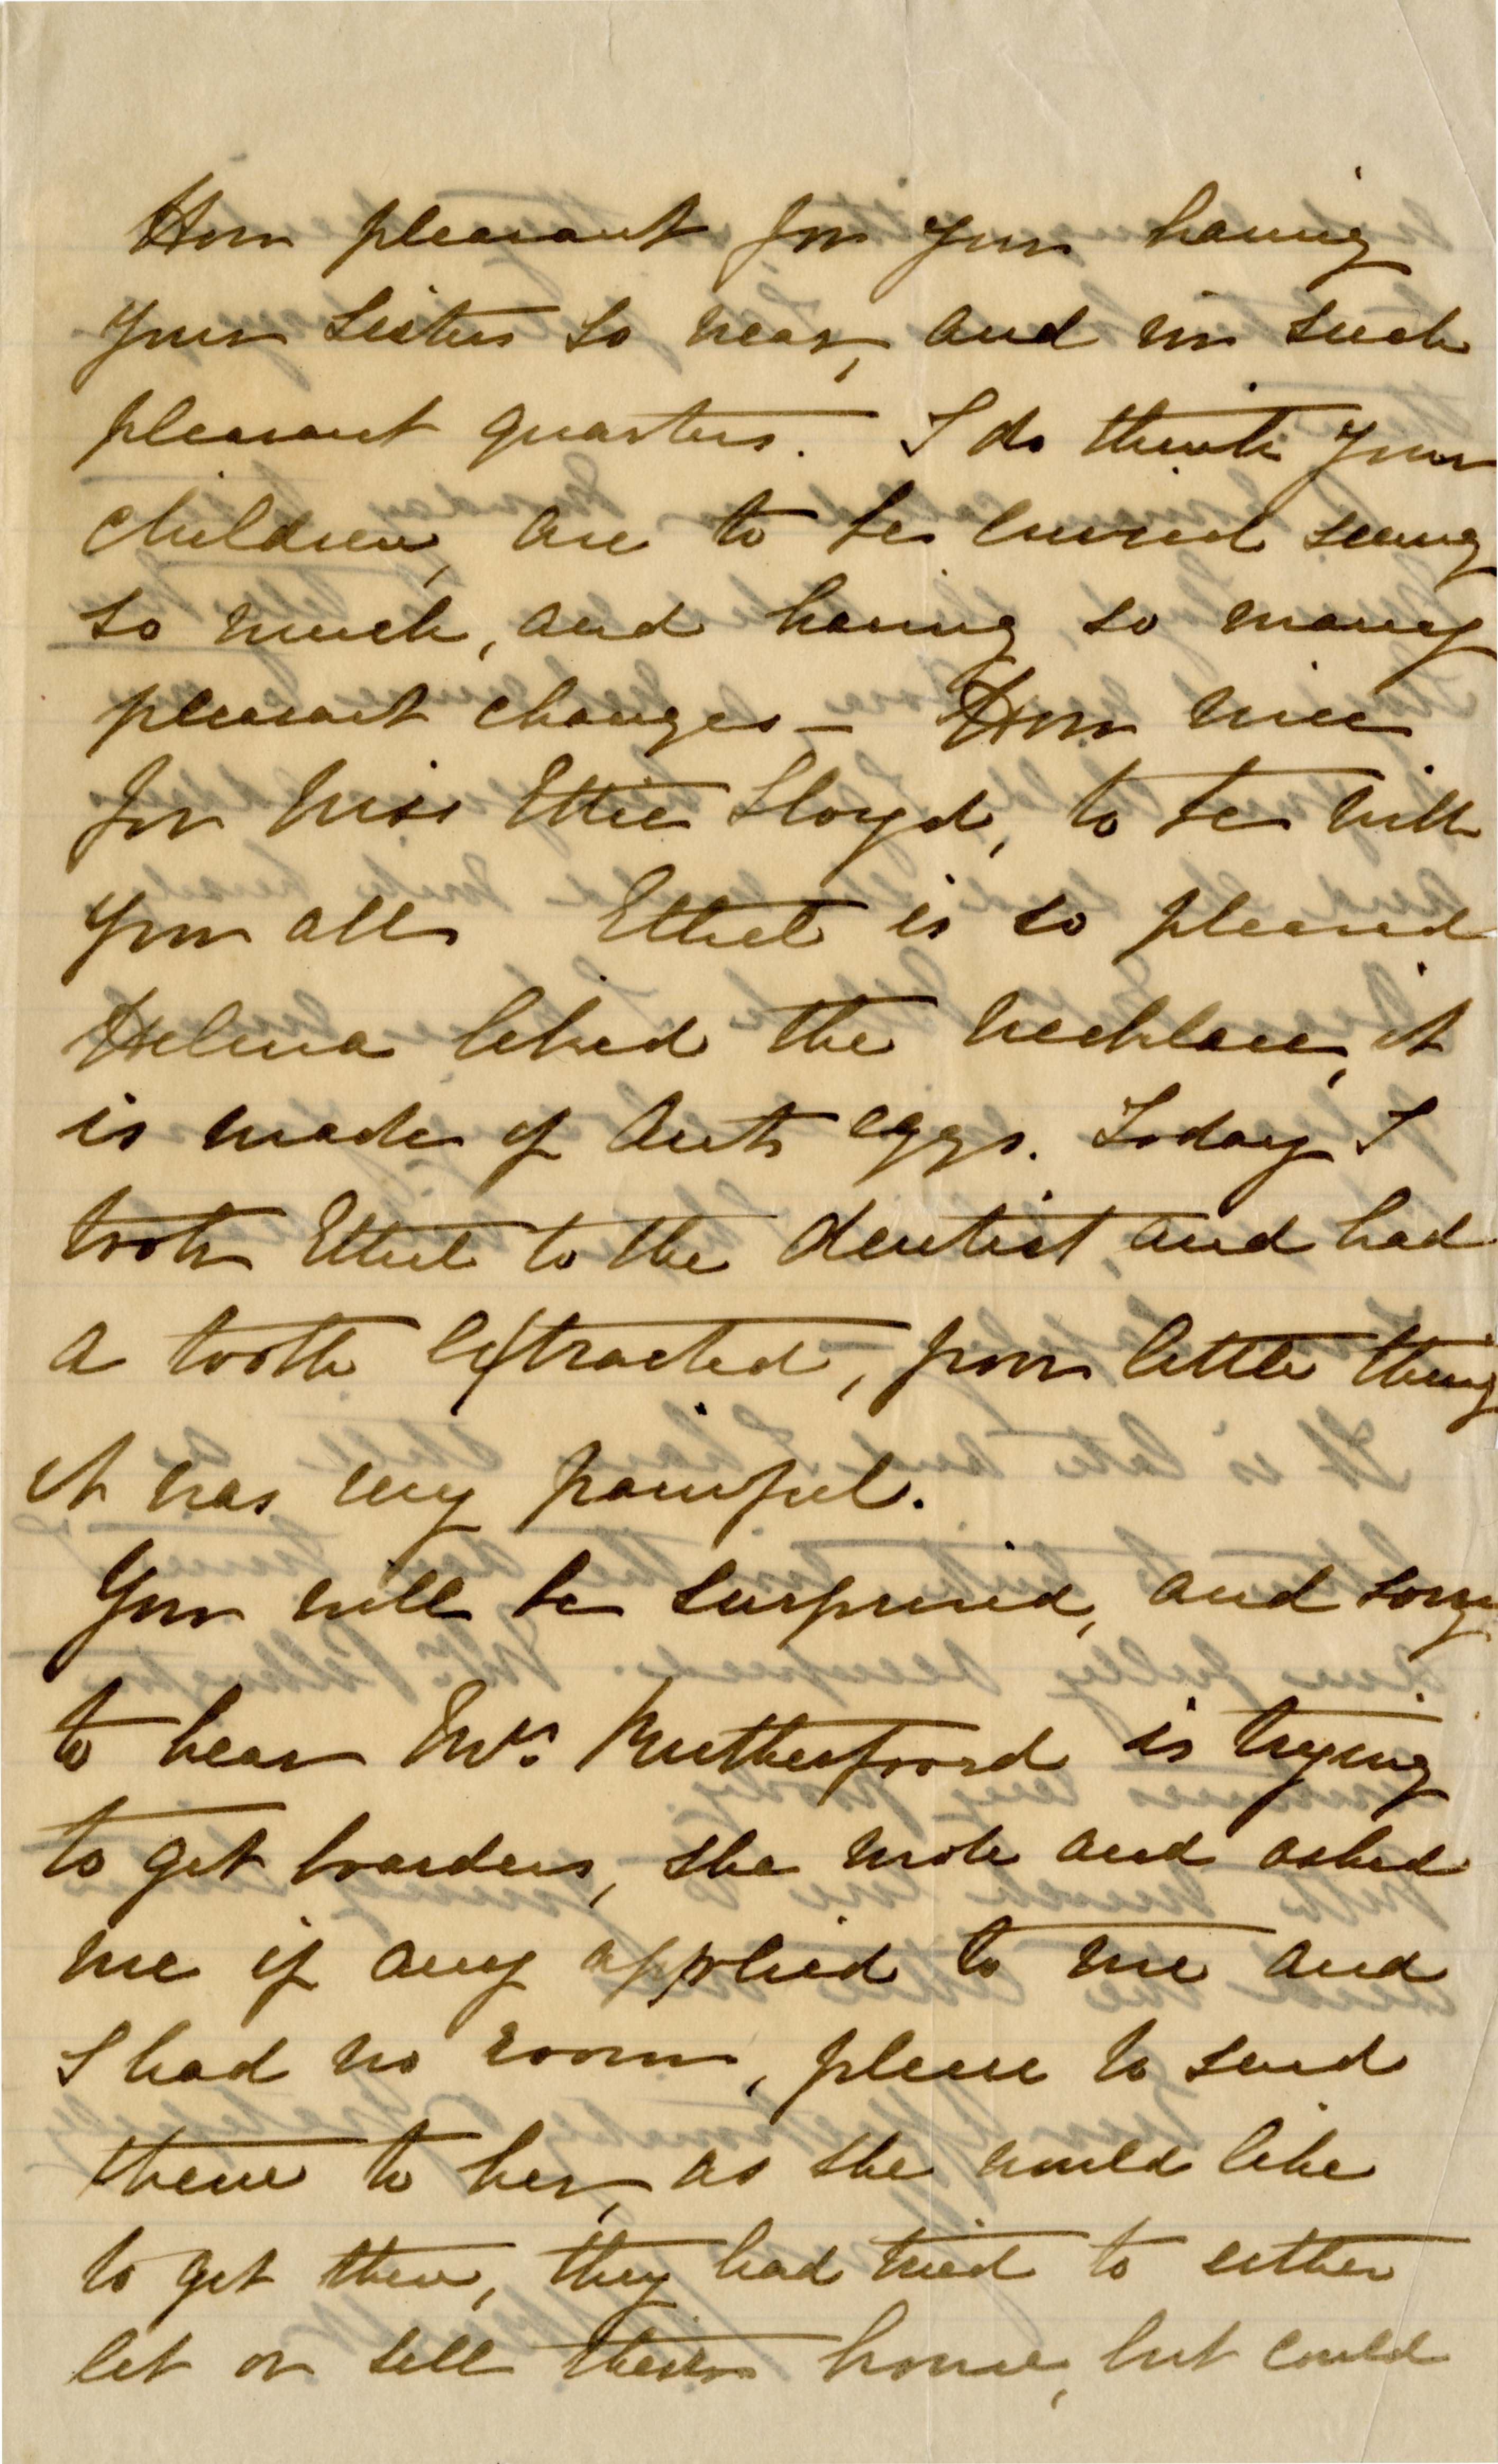 How pleasant for you having
your sister so near, and in such
pleasant quarters. I do think your
children, are to be envied seeing
so much, and having so many
pleasant changes – How nice
for Miss Ettie Lloyd, to be with
you all Ethel is so pleased
Helena liked the necklace, it
is made of Ants eggs. Today I
took Ethel to the dentist, and had
a tooth extracted, poor little thing
it was very painful.
You will be surprised, and sorry
to hear Mrs. Rutherfoord is trying
to get boarders, she wrote and asked
me if any applied to me and
I had no room, please to send
them to her, as she would like
to get them, they had tried to either
let or sell their house, but could